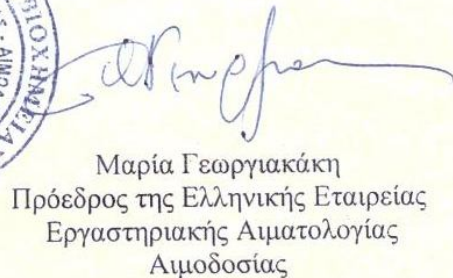 ΒΙΟΧΗΜΕΙΑ
Μαρία Γεωργιακάκη
Πρόεδρος της Ελληνικής Εταιρείας
Εργαστηριακής Αιματολογίας
Αιμοδοσίας